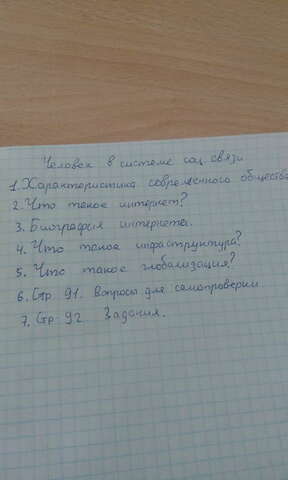 Человек в системе соц. связи
1. Характеристика современного общества
2. Что такое интернет?
3. Биография интернета.
4. Что такое инфаструктура?
5. Что такое глобализация?
6. Стр. 91. Вопросы для самопроверки
7. Стр. 92 Задания.